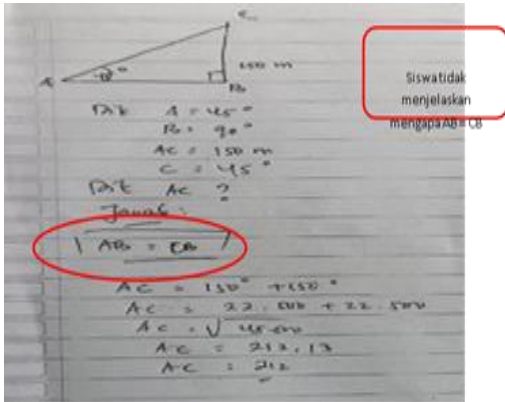 C
A
B
150 m
45°
Dik A = 45°
B = 90°
AC = 150 m
C = 45°
Dit AC ?
Jawab :
AB = CB
AC = 150² + 150²
AC = 22.500 + 22.500
AC = √45.000
AC = 212,13
AC = 212
Siswa tidak
menjelaskan
mengapa AB = CB